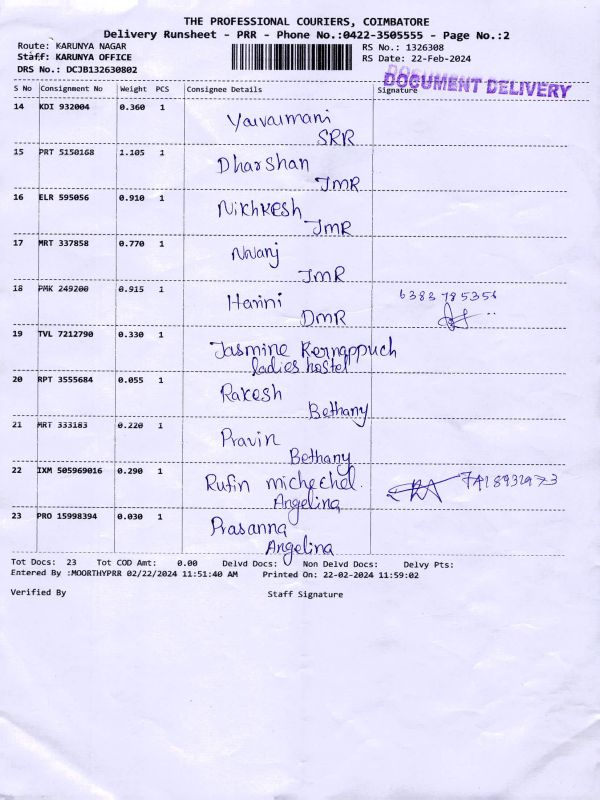 THE PROFESSIONAL COURIERS, COIMBATORE
Delivery Runsheet - PRR - Phone No.:0422-3505555 - Page No.:2
Route: KARUNYA NAGAR
Staff: KARUNYA OFFICE
DRS No.: DCJB132630802
RS No.: 1326308
RS Date: 22-Feb-2024
DOCUMENT DELIVERY
S No Consignment No Weight PCS Consignee Details Signature
14 KDI 932004 0.360 1
SRR
15 PRT 5150168 1.105 1 Dharshan
JMR
16 ELR 595056 0.910 1 Nikhkesh
JMR
17 MRT 337858 0.770 1
JMR
18 PMK 249200 0.915 1 Harini 6383785356
DMR
19 TVL 7212790 0.330 1 Jasmine Kernappuch
ladies hostel
20 RPT 3555684 0.055 1 Rakesh
Bethany
21 MRT 333183 0.220 1 Pravin
Bethany
22 IXM 505969016 0.290 1 Rufin michechel. 7418932973
Angelina
23 PRO 15998394 0.030 1 Prasanna
Angelina
Tot Docs: 23 Tot COD Amt: 0.00 Delvd Docs: Non Delvd Docs: Delvy Pts:
Entered By :MOORTHYPRR 02/22/2024 11:51:40 AM Printed On: 22-02-2024 11:59:02
Verified By Staff Signature